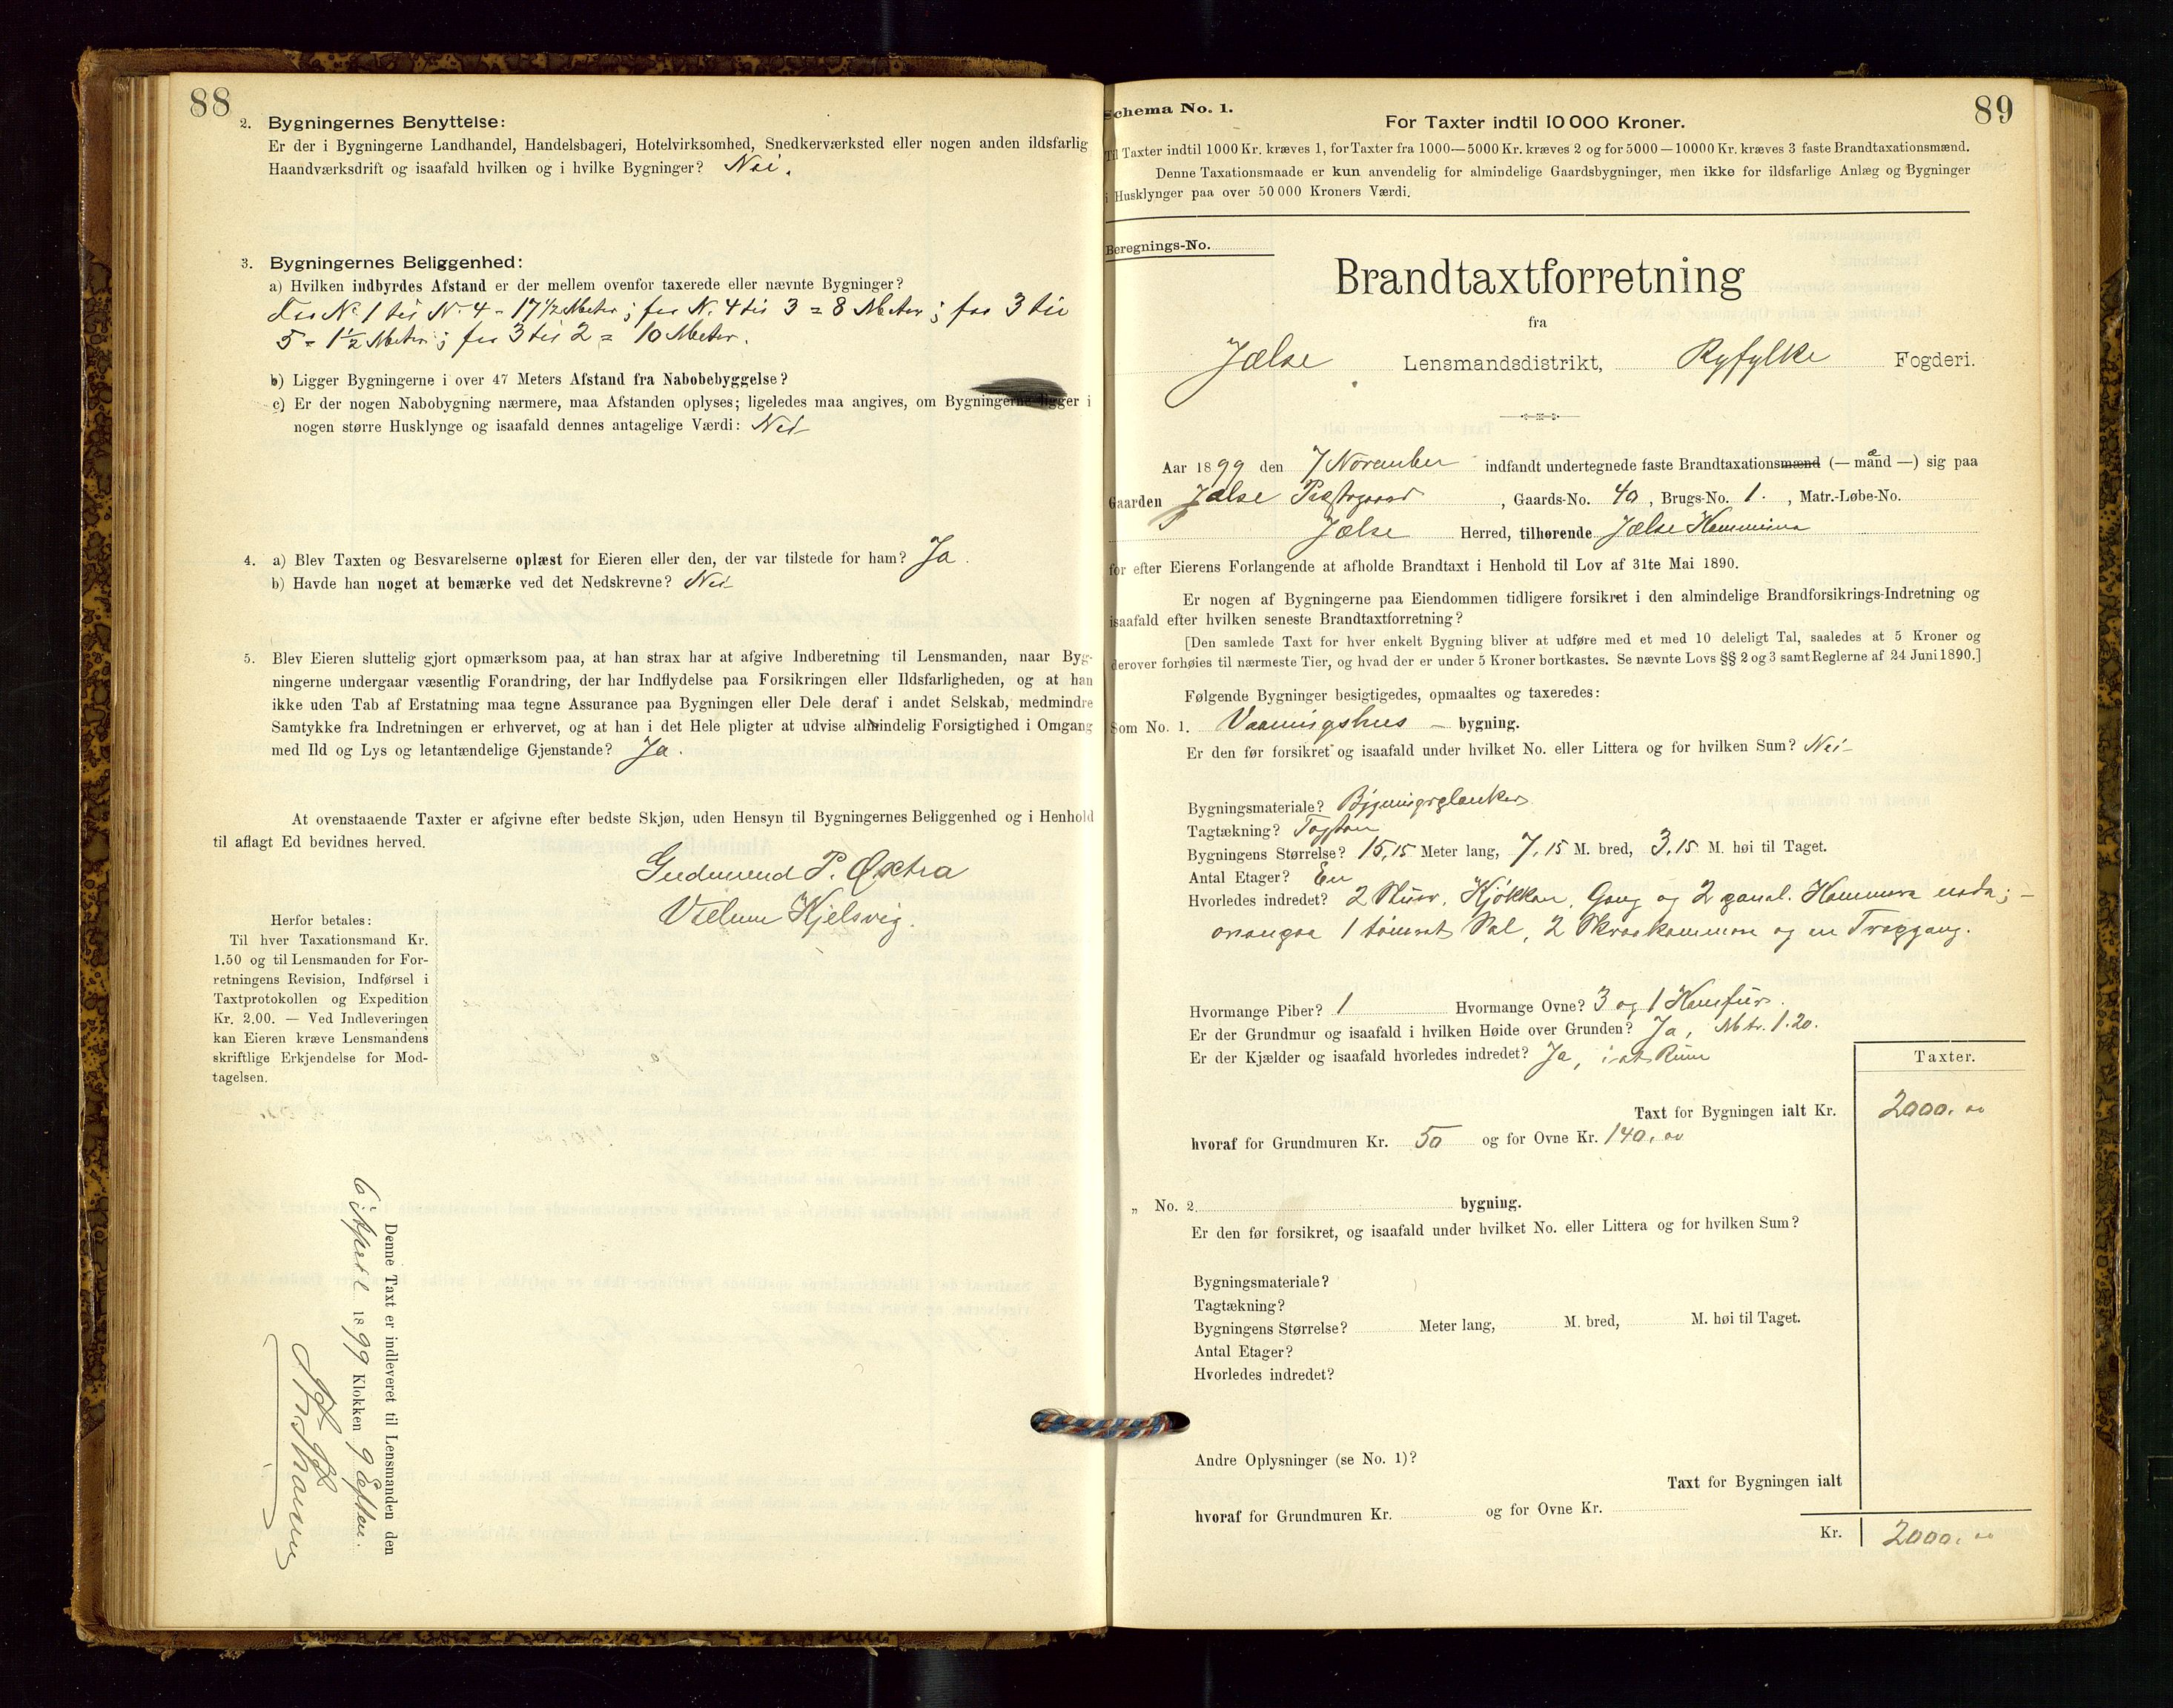 88
2. Bygningernes Benyttelse:
Er der i Bygningerne Landhandel, Handelsbageri, Hotelvirksomhed, Snedkerværksted eller nogen anden ildsfarlig
Haandværksdrift og isaafald hvilken og i hvilke Bygninger? Nei.
3. Bygningernes Beliggenhed:
a) Hvilken indbyrdes Afstand er der mellem ovenfor taxerede eller nævnte Bygninger?
Fra No 1 til No 4 = 17 1/2 Meter; fra N. 4 til 3 = 8 Meter; fra 3 til
5 = 1 1/2 Meter; fra 3 til 2 = 10 Meter.
b) Ligger Bygningerne i over 47 Meters Afstand fra Nabobebyggelse?
c) Er der nogen Nabobygning nærmere, maa Afstanden oplyses; ligeledes maa angives, om Bygningerne ligger i
nogen større Husklynge og isaafald dennes antagelige Værdi: Nei
4. a) Blev Taxten og Besvarelserne oplæst for Eieren eller den, der var tilstede for ham? Ja.
b) Havde han noget at bemærke ved det Nedskrevne? Nei
5. Blev Eieren sluttelig gjort opmærksom paa, at han strax har at afgive Indberetning til Lensmanden, naar Byg-
ningerne undergaar væsentlig Forandring, der har Indflydelse paa Forsikringen eller Ildsfarligheden, og at han
ikke uden Tab af Erstatning maa tegne Assurance paa Bygningen eller Dele deraf i andet Selskab, medmindre
Samtykke fra Indretningen er erhvervet, og at han i det Hele pligter at udvise almindelig Forsigtighed i Omgang
med Ild og Lys og letantændelige Gjenstande? Ja.
At ovenstaaende Taxter er afgivne efter bedste Skjøn, uden Hensyn til Bygningernes Beliggenhed og i Henhold
til aflagt Ed bevidnes herved.
Gudmund P. Øxtra
Vilum Hjelsvig.
Herfor betales:
Til hver Taxationsmand Kr.
1.50 og til Lensmanden for For-
retningens Revision, Indførsel i
Taxtprotokollen og Expedition
Kr. 2.00. — Ved Indleveringen
kan Eieren kræve Lensmandens
skriftlige Erkjendelse for Mod-
tagelsen.
Denne Taxt er indleveret til Lensmanden den
6 April 1899 Klokken 9 Efterm.
89
Schema No. 1.
For Taxter indtil 10 000 Kroner.
Til Taxter indtil 1000 Kr. kræves 1, for Taxter fra 1000—5000 Kr. kræves 2 og for 5000—10000 Kr. kræves 3 faste Brandtaxationsmænd.
Denne Taxationsmaade er kun anvendelig for almindelige Gaardsbygninger, men ikke for ildsfarlige Anlæg og Bygninger
i Husklynger paa over 50 000 Kroners Værdi.
Beregnings-No.
Brandtaxtforretning
fra
Jælse Lensmandsdistrikt, Ryfylke Fogderi.
Aar 1899 den 7 November indfandt undertegnede faste Brandtaxationsmænd (— månd —) sig paa
Gaarden Jælse Prestegaard, Gaards-No. 40, Brugs-No. 1., Matr.-Løbe-No.
Jælse Herred, tilhørende Jælse Kommune
for efter Eierens Forlangende at afholde Brandtaxt i Henhold til Lov af 31te Mai 1890.
Er nogen af Bygningerne paa Eiendommen tidligere forsikret i den almindelige Brandforsikrings-Indretning og
isaafald efter hvilken seneste Brandtaxtforretning?
[Den samlede Taxt for hver enkelt Bygning bliver at udføre med et med 10 deleligt Tal, saaledes at 5 Kroner og
derover forhøies til nærmeste Tier, og hvad der er under 5 Kroner bortkastes. Se nævnte Lovs §§ 2 og 3 samt Reglerne af 24 Juni 1890.]
Følgende Bygninger besigtigedes, opmaaltes og taxeredes:
Som No. 1. Vaaningshus — bygning.
Er den før forsikret og isaafald under hvilket No. eller Littera og for hvilken Sum? Nei
Bygningsmateriale? Bygningsplanker
Tagtækning? Tagsten
Bygningens Størrelse? 15,15 Meter lang, 7,15 M. bred, 3,15 M. høi til Taget.
Antal Etager? En
Hvorledes indredet? 2 Stuer, Kjøkken, Gang og 2 panel. Kammere nede; —
ovenpaa 1 tømret Sal, 2 Skraakammere og en Trapgang.
Hvormange Piber? 1 Hvormange Ovne? 3 og 1 Komfur.
Er der Grundmur og isaafald i hvilken Høide over Grunden? Ja, Mtr. 1.20.
Er der Kjælder og isaafald hvorledes indredet? Ja, i et Rum
Taxter.
Taxt for Bygningen ialt Kr. 2000.00
hvoraf for Grundmuren Kr. 50 og for Ovne Kr. 140.00
„ No. 2 bygning.
Er den før forsikret, og isaafald under hvilket No. eller Littera og for hvilken Sum?
Bygningsmateriale?
Tagtækning?
Bygningens Størrelse? Meter lang, M. bred, M. høi til Taget.
Antal Etager?
Hvorledes indredet?
Andre Oplysninger (se No. 1)?
Taxt for Bygningen ialt
hvoraf for Grundmuren Kr. og for Ovne Kr.
Kr. 2000.00